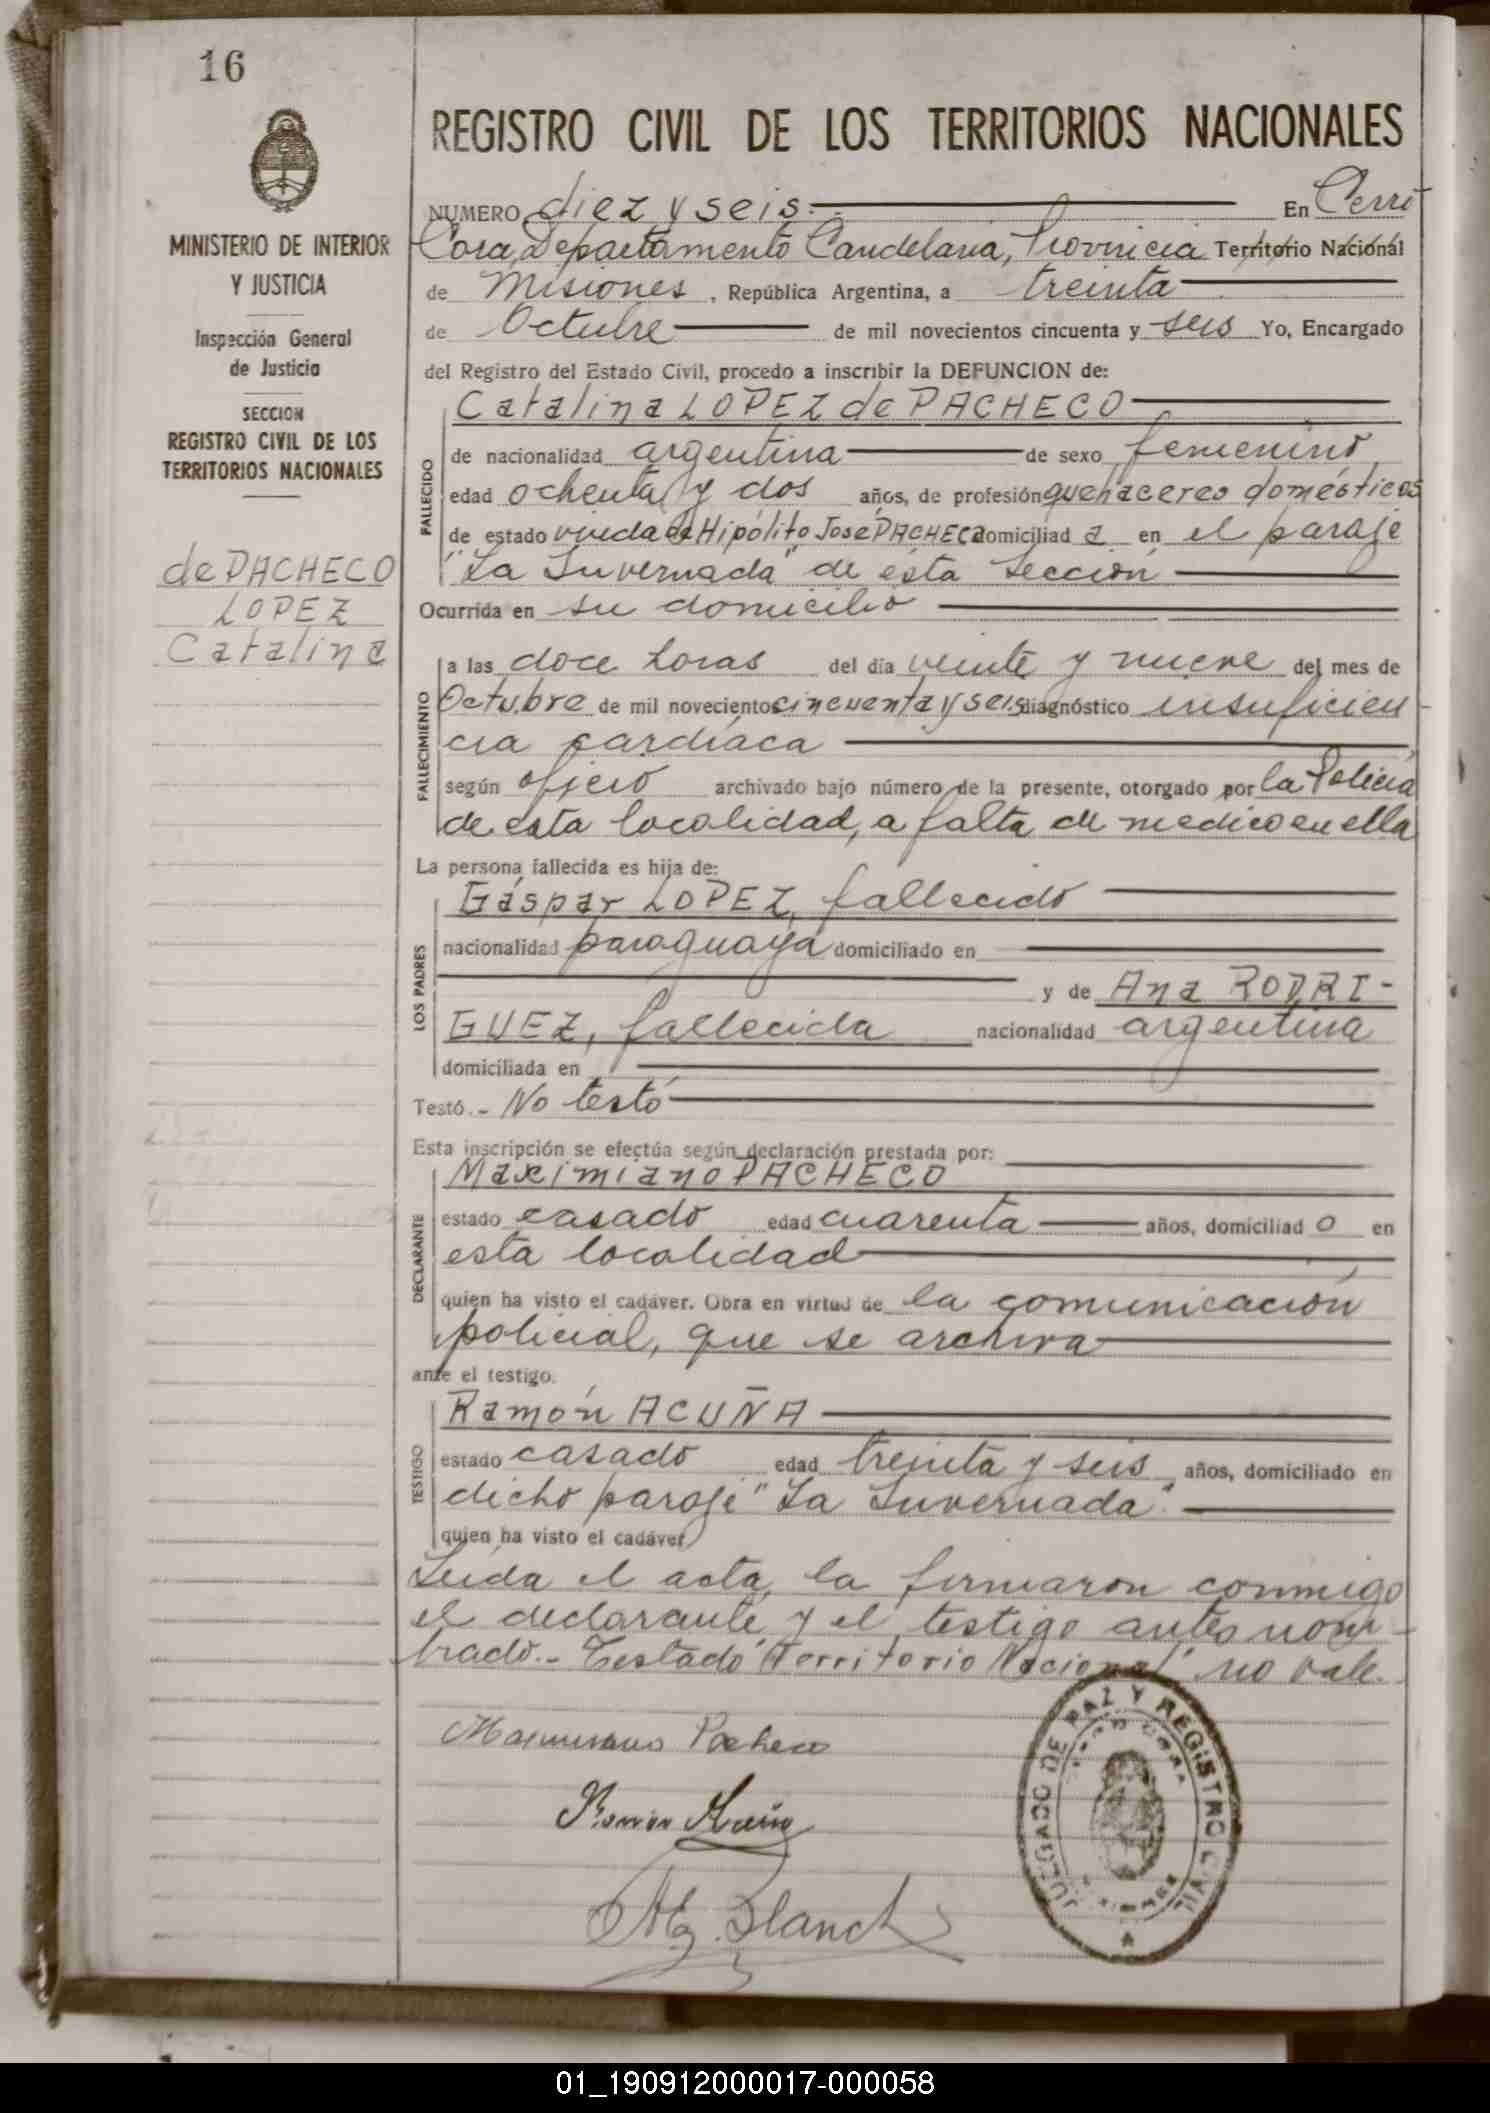 16
MINISTERIO DE INTERIOR
Y JUSTICIA
Inspección General
de Justicia
SECCION
REGISTRO CIVIL DE LOS
TERRITORIOS NACIONALES
de PACHECO
LOPEZ
Catalina
REGISTRO CIVIL DE LOS TERRITORIOS NACIONALES
NUMERO diez y seis.- En Cerro
Cora, Departamento Candelaria, Provincia Territorio Nacional
de Misiones, República Argentina, a treinta
de Octubre de mil novecientos cincuenta y seis Yo, Encargado
del Registro del Estado Civil, procedo a inscribir la DEFUNCION de:
Catalina LOPEZ de PACHECO
FALLECIDO
de nacionalidad argentina de sexo femenino
edad ochenta y dos años, de profesión quehaceres domésticos
de estado viuda de Hipólito José PACHECO domiciliad a en el paraje
"La Invernada" de ésta Sección
Ocurrida en su domicilio
FALLECIMIENTO
a las doce horas del día veinte y nueve del mes de
Octubre de mil novecientos cincuenta y seis diagnóstico insuficien
cia cardíaca
según oficio archivado bajo número de la presente, otorgado por la Policía
de esta localidad, a falta de medico en ella
La persona fallecida es hija de:
LOS PADRES
Gáspar LOPEZ, fallecido
nacionalidad paraguaya domiciliado en
y de Ana RODRI-
GUEZ, fallecida nacionalidad argentina
domiciliada en
Testó.- No testó
Esta inscripción se efectúa según declaración prestada por:
DECLARANTE
Maximiano PACHECO
estado casado edad cuarenta años, domiciliad o en
esta localidad
quien ha visto el cadáver. Obra en virtud de la comunicación
policial, que se archiva
ante el testigo.
TESTIGO
Ramón ACUÑA
estado casado edad treinta y seis años, domiciliado en
dicho paraje "La Invernada".
quien ha visto el cadáver
Leída el acta, la firmaron conmigo
el declarante y el testigo antes nom-
brado.- Testado "Territorio Nacional" no vale.-
Maximiano Pacheco
Ramón Acuña
Blanch
JUZGADO DE PAZ Y REGISTRO CIVIL
01_190912000017-000058